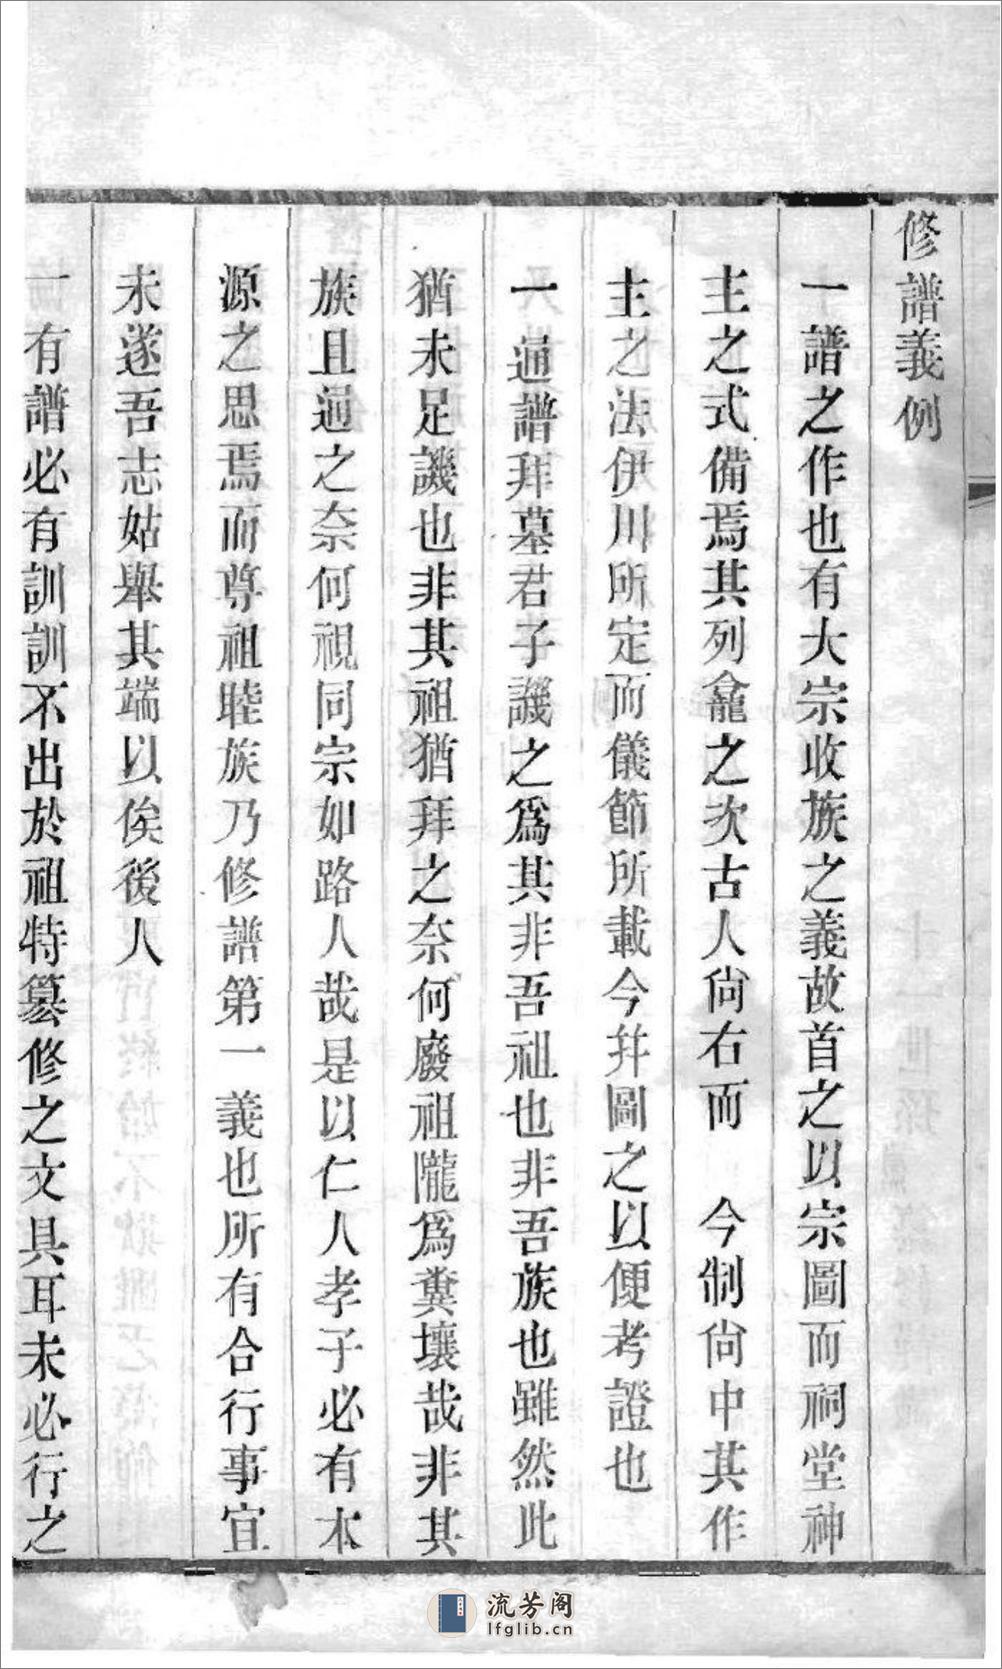 修譜義例
一譜之作也有大宗收族之義故首之以宗圖而祠堂神
主之式備焉其列龕之次古人尙右而　今制尙中其作
主之法伊川所定而儀節所載今幷圖之以便考證也
一通譜拜墓君子譏之爲其非吾祖也非吾族也雖然此
猶未足譏也非其祖猶拜之奈何廢祖隴爲糞壤哉非其
族且通之奈何視同宗如路人哉是以仁人孝子必有本
源之思焉而尊祖睦族乃修譜第一義也所有合行事宜
未遂吾志姑舉其端以俟後人
一有譜必有訓訓不出於祖特篡修之文具耳未必行之
流芳阁
lfglib.cn